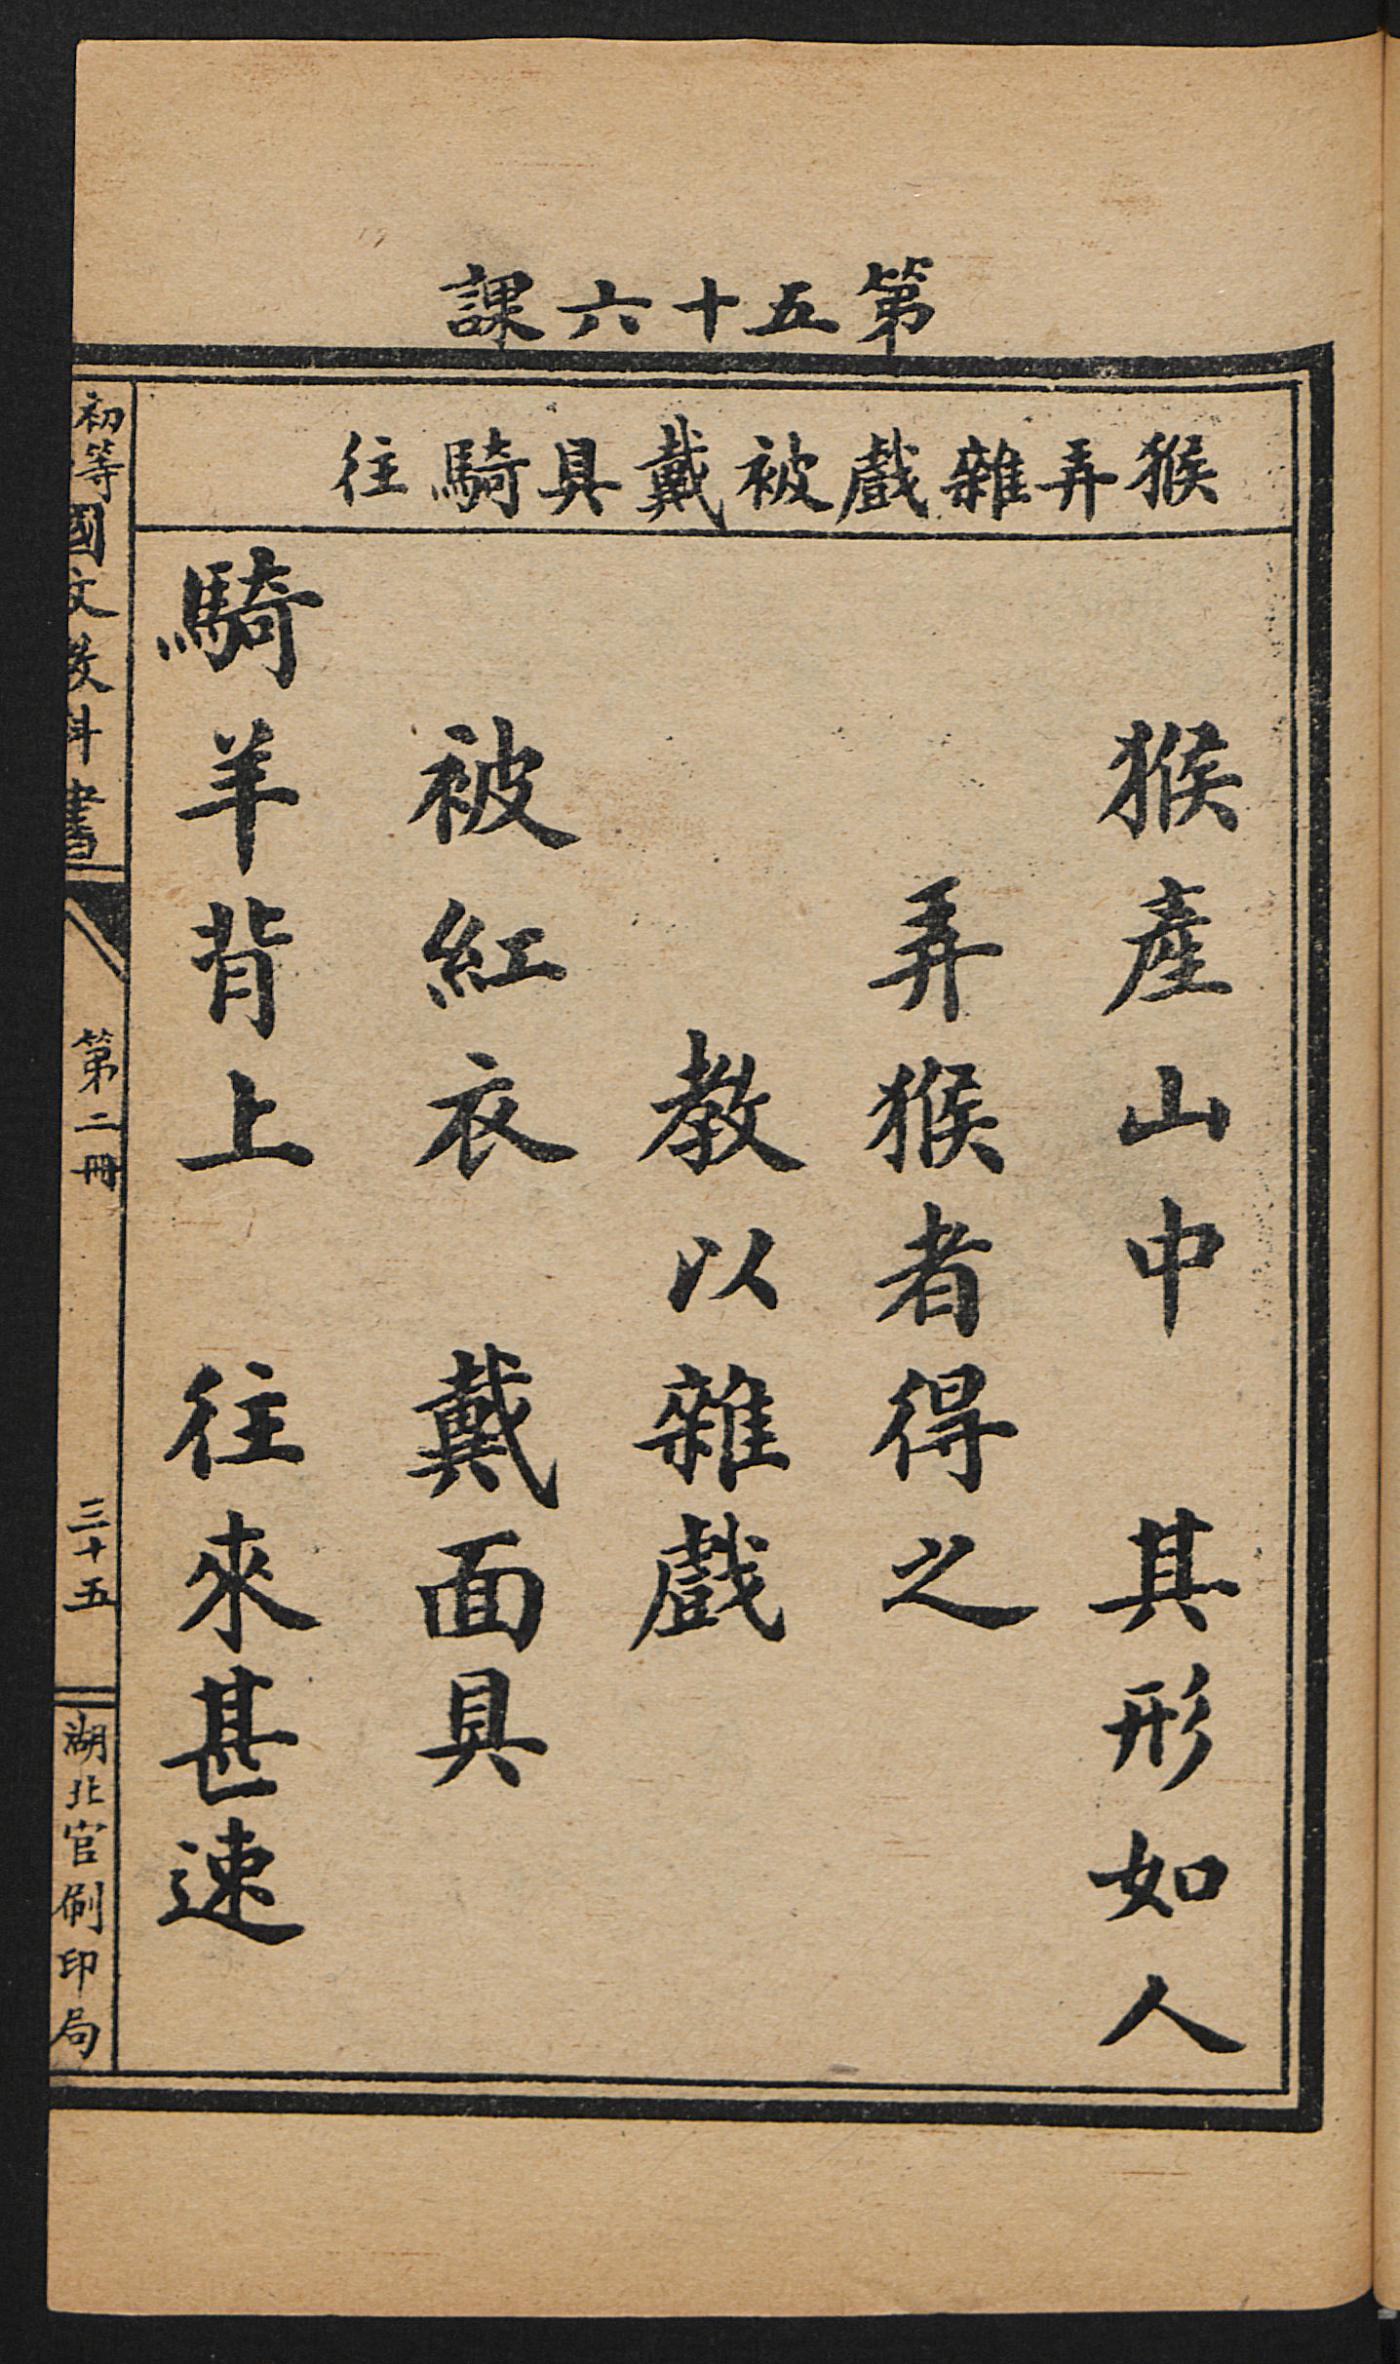 第五十六課
猴弄雜戲被戴具騎往
猴產山中　其形如人
弄猴者得之
教以雜戲
被紅衣　戴面具
騎羊背上　往來甚速
初等國文教科書
第二冊
三十五
湖北官刷印局